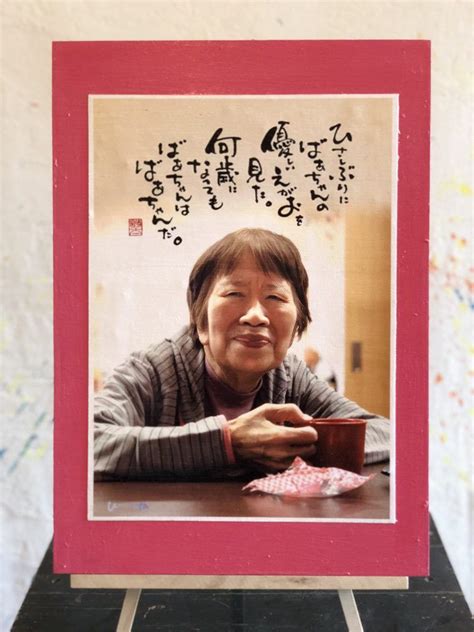 ひさしぶりに
ばぁちゃんの
優しいえがおを
見た。
何歳に
なっても
ばぁちゃんは
ばぁちゃんだ。